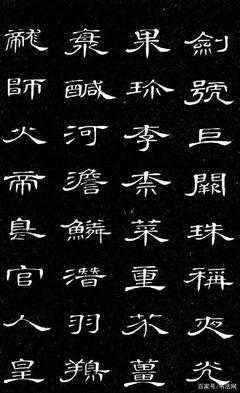 劍號巨闕珠稱夜光
果珎李柰菜重芥薑
海鹹河澹鱗潛羽翔
龍師火帝鳥官人皇
百家号/书法网